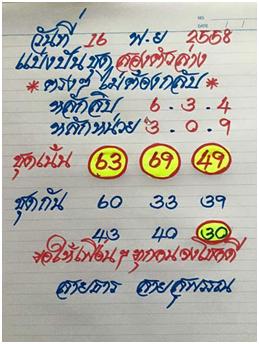 NO.
DATE
วันที่ 16 พ.ย 2558
แบ่งปัน ชุด สองตัวล่าง
* ตรงๆ ไม่ต้องกลับ *
หลักสิบ 6 . 3 . 4
หลักหน่วย 3 . 0 . 9
ชุดเน้น 63 69 49
ชุดกัน 60 33 39
43 40 30
ขอให้เพื่อนๆ ทุกคนจงโชคดี
สายธาร สายสุพรรณ